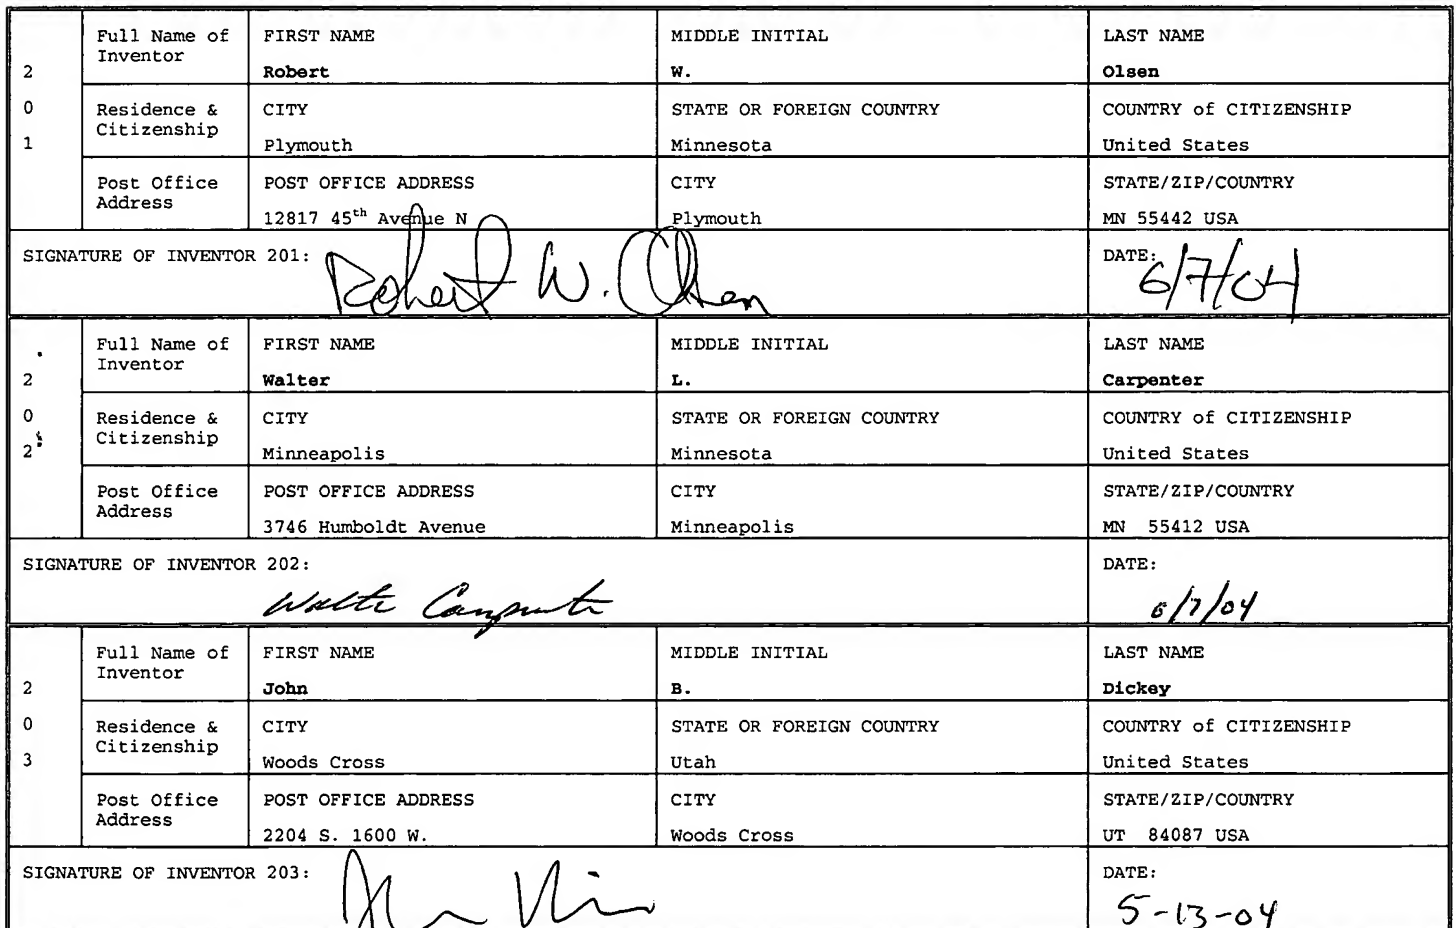 2 0 1
Full Name of Inventor
FIRST NAME
Robert
MIDDLE INITIAL
W.
LAST NAME
Olsen
Residence & Citizenship
CITY
Plymouth
STATE OR FOREIGN COUNTRY
Minnesota
COUNTRY of CITIZENSHIP
United States
Post Office Address
POST OFFICE ADDRESS
12817 45th Avenue N
CITY
Plymouth
STATE/ZIP/COUNTRY
MN 55442 USA
SIGNATURE OF INVENTOR 201: Robert W. Olsen
DATE: 6/7/04
2 0 2
Full Name of Inventor
FIRST NAME
Walter
MIDDLE INITIAL
L.
LAST NAME
Carpenter
Residence & Citizenship
CITY
Minneapolis
STATE OR FOREIGN COUNTRY
Minnesota
COUNTRY of CITIZENSHIP
United States
Post Office Address
POST OFFICE ADDRESS
3746 Humboldt Avenue
CITY
Minneapolis
STATE/ZIP/COUNTRY
MN 55412 USA
SIGNATURE OF INVENTOR 202:
Walter Carpenter
DATE:
6/7/04
2 0 3
Full Name of Inventor
FIRST NAME
John
MIDDLE INITIAL
B.
LAST NAME
Dickey
Residence & Citizenship
CITY
Woods Cross
STATE OR FOREIGN COUNTRY
Utah
COUNTRY of CITIZENSHIP
United States
Post Office Address
POST OFFICE ADDRESS
2204 S. 1600 W.
CITY
Woods Cross
STATE/ZIP/COUNTRY
UT 84087 USA
SIGNATURE OF INVENTOR 203:
DATE:
5-13-04